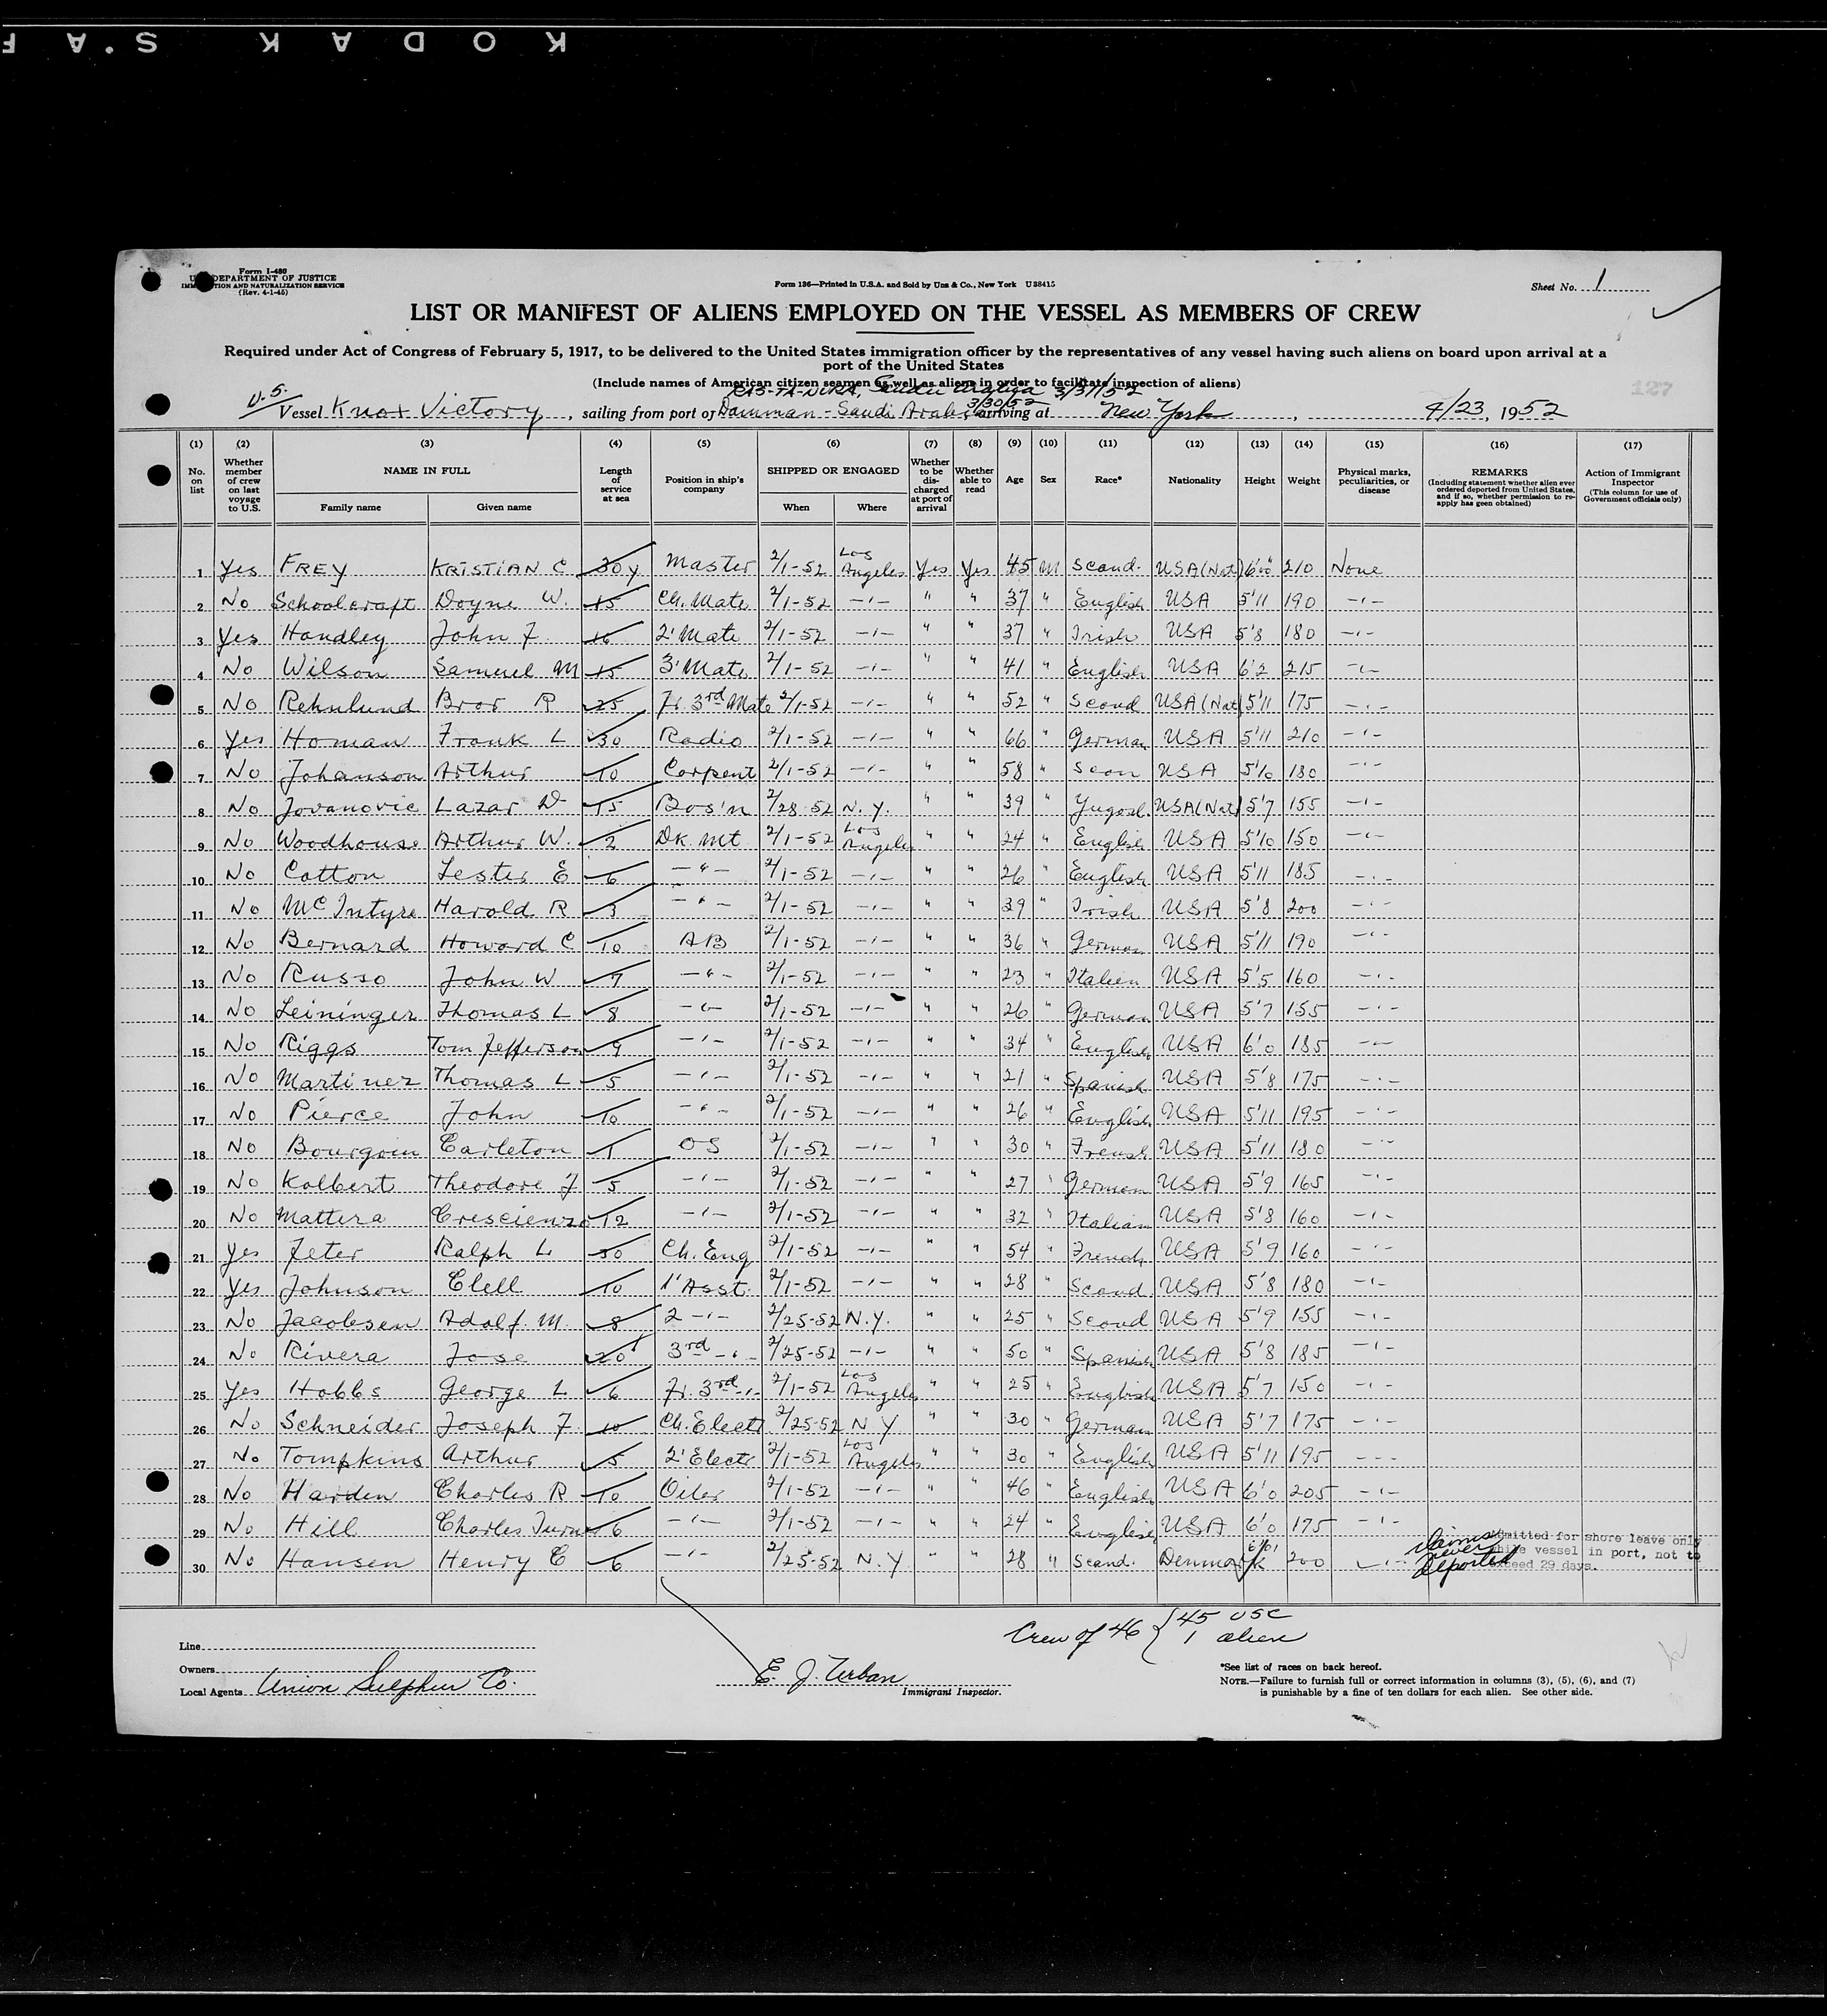 KODAK S.A F
Form I-480
U. S. DEPARTMENT OF JUSTICE
IMMIGRATION AND NATURALIZATION SERVICE
(Rev. 4-1-45)
Form 136—Printed in U.S.A. and Sold by Unz & Co., New York U38415
Sheet No. 1
LIST OR MANIFEST OF ALIENS EMPLOYED ON THE VESSEL AS MEMBERS OF CREW
Required under Act of Congress of February 5, 1917, to be delivered to the United States immigration officer by the representatives of any vessel having such aliens on board upon arrival at a
port of the United States
(Include names of American citizen seamen as well as aliens in order to facilitate inspection of aliens)
RAS-TA-NURA, Saudi Arabia 3/31/52
127
U.S. Vessel Knox Victory, sailing from port of Damman - Saudi Arabia 3/30/52, arriving at New York, 4/23, 1952
(1) (2) (3) (4) (5) (6) (7) (8) (9) (10) (11) (12) (13) (14) (15) (16) (17)
No. on list Whether member of crew on last voyage to U.S. NAME IN FULL Family name Given name Length of service at sea Position in ship's company SHIPPED OR ENGAGED When Where Whether to be discharged at port of arrival Whether able to read Age Sex Race* Nationality Height Weight Physical marks, peculiarities, or disease REMARKS (Including statement whether alien ever ordered deported from United States, and if so, whether permission to reapply has geen obtained) Action of Immigrant Inspector (This column for use of Government officials only)
1 Yes FREY KRISTIAN C 30y Master 2/1-52 Los Angeles Yes Yes 45 M Scand. USA(Nat) 6'00" 210 None
2 No Schoolcraft Doyne W. 15 Ch. Mate 2/1-52 -"- " " 37 " English USA 5'11 190 -"-
3 Yes Handley John F. 16 2' Mate 2/1-52 -"- " " 37 " Irish USA 5'8 180 -"-
4 No Wilson Samuel M 15 3' Mate 2/1-52 -"- " " 41 " English USA 6'2 215 -"-
5 No Rehnlund Bror R 25 Jr. 3rd Mate 2/1-52 -"- " " 52 " Scand USA(Nat) 5'11 175 -"-
6 Yes Homan Frank L 30 Radio 2/1-52 -"- " " 66 " German USA 5'11 210 -"-
7 No Johanson Arthur 10 Carpent 2/1-52 -"- " " 58 " Scan USA 5'10 180 -"-
8 No Jovanovic Lazar D 15 Bos'n 2/28-52 N.Y. " " 39 " Yugosl. USA(Nat) 5'7 155 -"-
9 No Woodhouse Arthur W. 2 Dk. Mt 2/1-52 Los Angeles " " 24 " English USA 5'10 150 -"-
10 No Cotton Lester E 6 -"- 2/1-52 -"- " " 26 " English USA 5'11 185 -"-
11 No McIntyre Harold R 3 -"- 2/1-52 -"- " " 39 " Irish USA 5'8 200 -"-
12 No Bernard Howard C 10 AB 2/1-52 -"- " " 36 " German USA 5'11 190 -"-
13 No Russo John W 7 -"- 2/1-52 -"- " " 23 " Italien USA 5'5 160 -"-
14 No Leininger Thomas L 8 -"- 2/1-52 -"- " " 26 " German USA 5'7 155 -"-
15 No Riggs Tom Jefferson 9 -"- 2/1-52 -"- " " 34 " English USA 6'0 185 -"-
16 No Martinez Thomas L 5 -"- 2/1-52 -"- " " 21 " Spanish USA 5'8 175 -"-
17 No Pierce John 10 -"- 2/1-52 -"- " " 26 " English USA 5'11 195 -"-
18 No Bourgoin Carleton 1 OS 2/1-52 -"- " " 30 " French USA 5'11 180 -"-
19 No Kolbert Theodore J 5 -"- 2/1-52 -"- " " 27 " German USA 5'9 165 -"-
20 No Mattera Crescienzo 12 -"- 2/1-52 -"- " " 32 " Italian USA 5'8 160 -"-
21 Yes Jeter Ralph L 30 Ch. Eng 2/1-52 -"- " " 54 " French USA 5'9 160 -"-
22 Yes Johnson Clell 10 1' Asst. 2/1-52 -"- " " 28 " Scand USA 5'8 180 -"-
23 No Jacobsen Adolf. M. 8 2 -"- 2/25-52 N.Y. " " 25 " Scand USA 5'9 155 -"-
24 No Rivera Jose 20 3rd -"- 2/25-52 -"- " " 50 " Spanish USA 5'8 185 -"-
25 Yes Hobbs George L 6 Jr. 3rd -"- 2/1-52 Los Angeles " " 25 " English USA 5'7 150 -"-
26 No Schneider Joseph F. 10 Ch. Electr 2/25-52 N Y " " 30 " German USA 5'7 175 -"-
27 No Tompkins Arthur 5 2' Electr 2/1-52 Los Angeles " " 30 " English USA 5'11 195 -"-
28 No Harden Charles R 10 Oiler 2/1-52 -"- " " 46 " English USA 6'0 205 -"-
29 No Hill Charles Turner 6 -"- 2/1-52 -"- " " 24 " English USA 6'0 175 -"-
30 No Hansen Henry C 6 -"- 2/25-52 N.Y. " " 28 " Scand. Denmark 6'01 200 -"- Claims never deported Admitted for shore leave only while vessel in port, not to exceed 29 days.
Crew of 46 { 45 USC
1 alien
Line
Owners
Local Agents Union Sulphur Co.
E. J. Urban
Immigrant Inspector.
*See list of races on back hereof.
NOTE.—Failure to furnish full or correct information in columns (3), (5), (6), and (7)
is punishable by a fine of ten dollars for each alien. See other side.